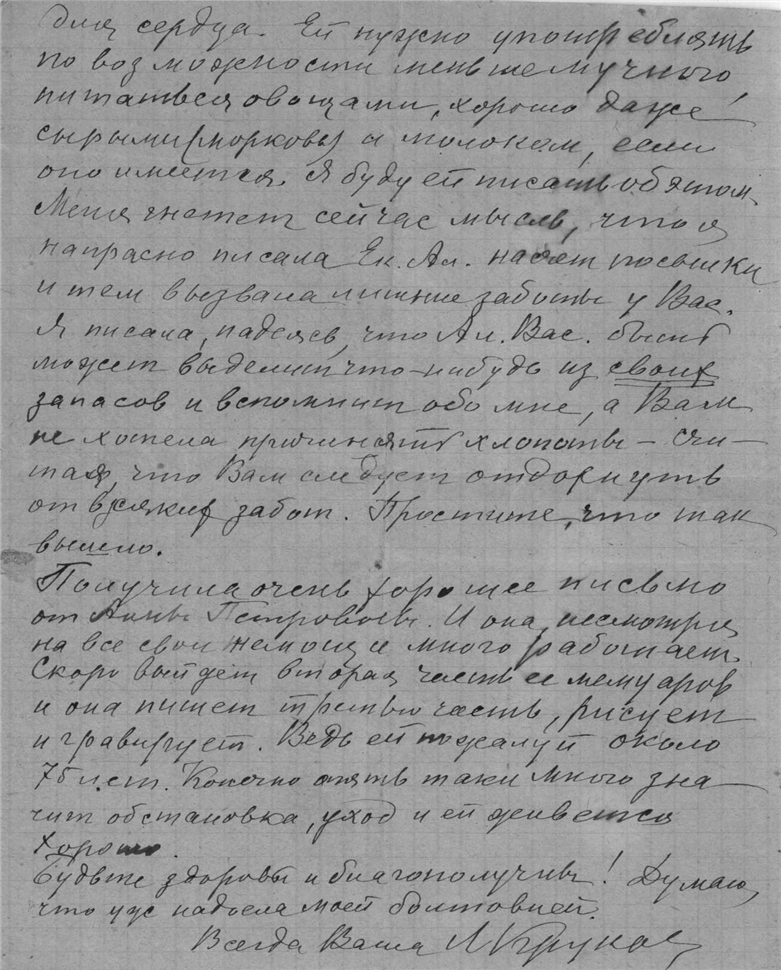 для сердца. Ей нужно употреблять
по возможности меньше мучного
питаться овощами, хорошо даже
сырыми (морковь) и молоком, если
оно имеется. Я буду ей писать об этом.
Меня гнетет сейчас мысль, что я
напрасно писала Ек. Ал. насчет посылки
и тем вызвала лишние заботы у Вас.
Я писала, надеясь, что Ал. Вас. быть
может выделит что-нибудь из своих
запасов и вспомнит обо мне, а Вам
не хотела причинять хлопоты – счи-
тая, что Вам следует отдохнуть
от всяких забот. Простите, что так
вышло.
Получила очень хорошее письмо
от Анны Петровны. И она, несмотря
на все свои немощи много работает.
Скоро выйдет вторая часть ее мемуаров
и она пишет третью часть, рисует
и гравирует. Ведь ей пожалуй около
75 лет. Конечно опять таки много зна-
чит обстановка, уход и ей живется
хорошо.
Будьте здоровы и благополучны! Думаю,
что уже надоела моей болтовней.
Всегда Ваша